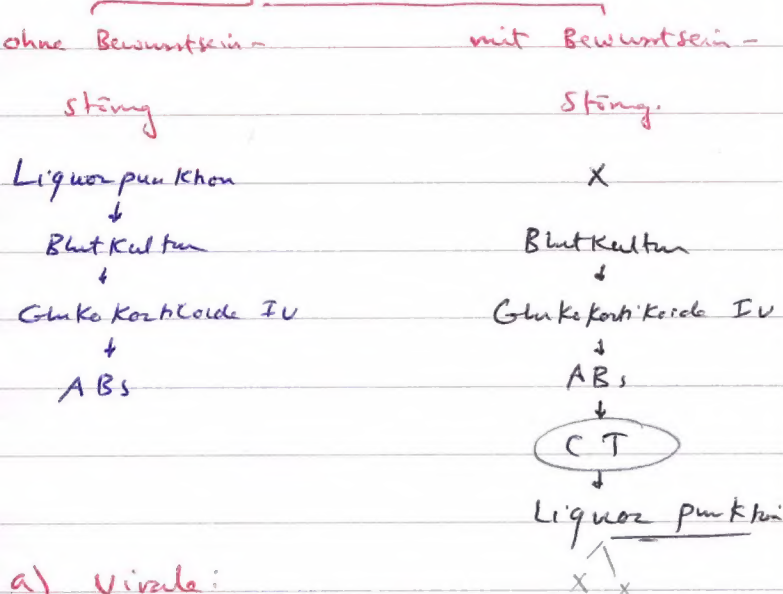 ohne Bewusstsein-
störung
Liquorpunktion
↓
Blutkultur
↓
Glukokortikoide IV
↓
ABs
mit Bewusstsein-
störung.
X
Blutkultur
↓
Glukokortikoide IV
↓
ABs
↓
CT
↓
Liquor punktion
X X
a) Virale: